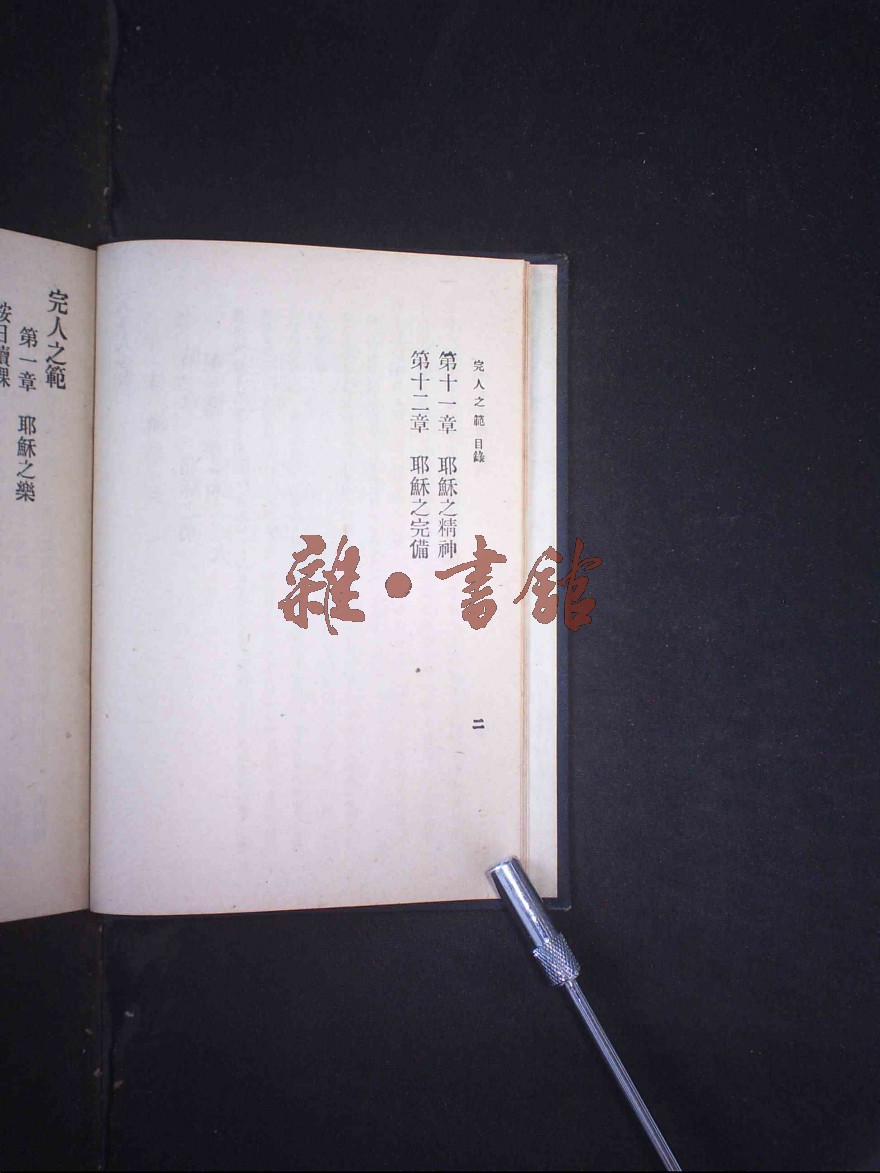 完人之範 目錄
第十一章 耶穌之精神
第十二章 耶穌之完備
二
完人之範
第一章 耶穌之樂
按日讀課
雜·書館